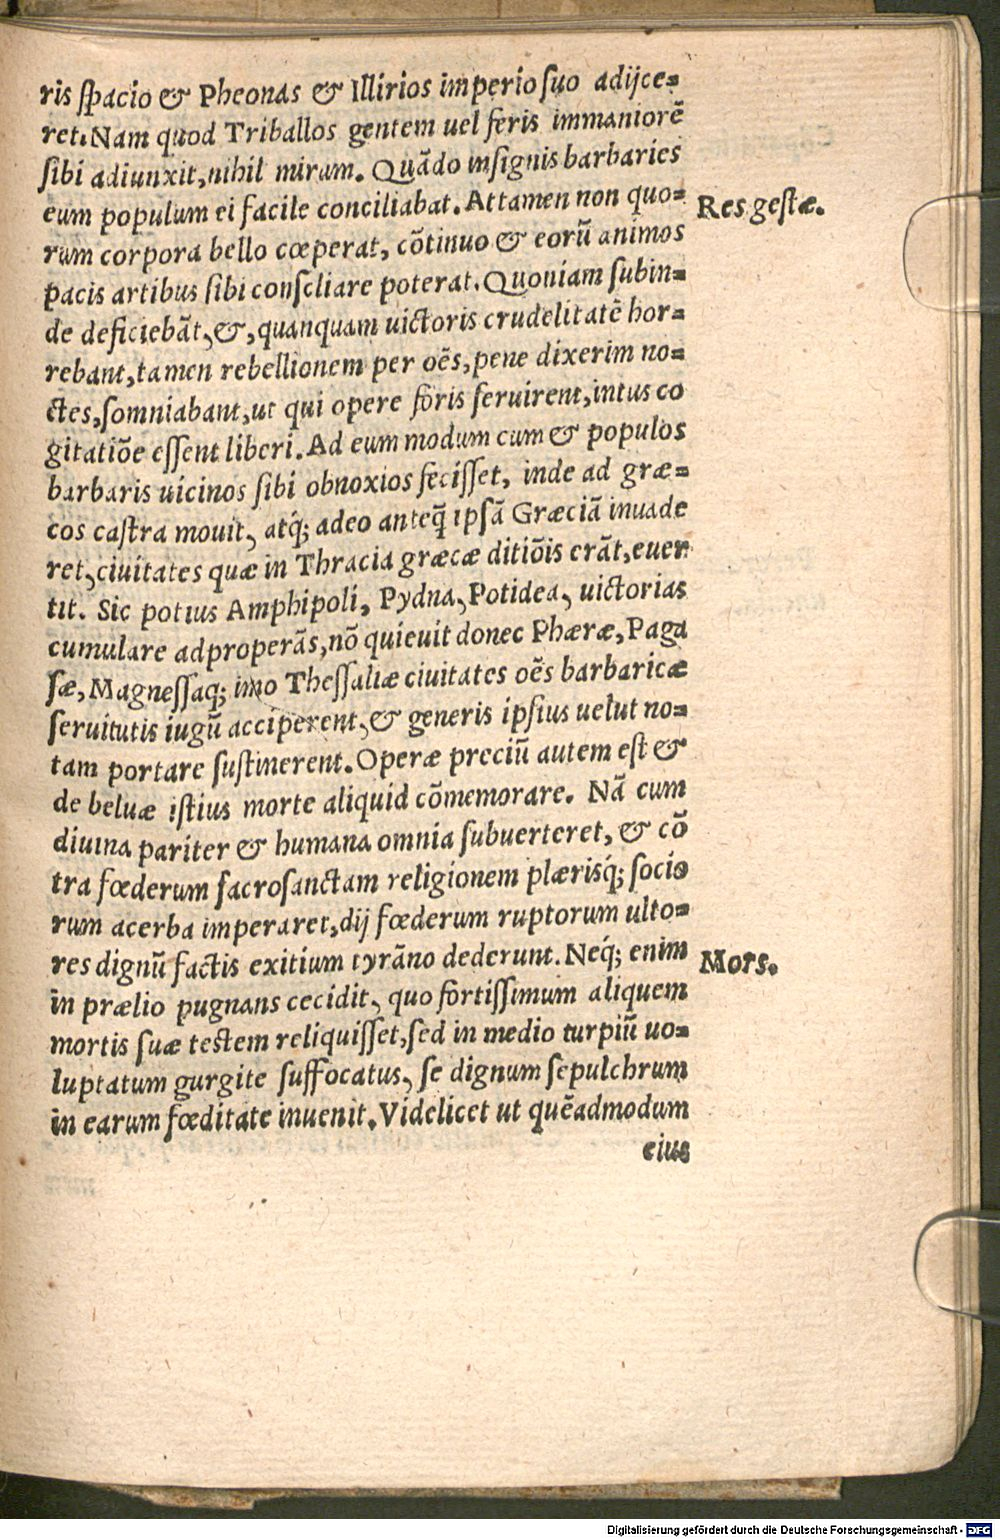 ris spacio & Pheonas & Illirios imperio suo adijce-
ret. Nam quod Triballos gentem uel feris immaniorẽ
sibi adiunxit, nihil mirum. Quãdo insignis barbaries
eum populum ei facile conciliabat. Attamen non quo-
Res gestæ.
rum corpora bello cœperat, cõtinuo & eorũ animos
pacis artibus sibi consciliare poterat. Quoniam subin-
de deficiebãt, &, quanquam uictoris crudelitatẽ hor-
rebant, tamen rebellionem per oẽs, pene dixerim no-
ctes, somniabant, ut qui opere foris seruirent, intus co
gitatiõe essent liberi. Ad eum modum cum & populos
barbaris uicinos sibi obnoxios fecisset, inde ad græ-
cos castra mouit, atq́; adeo anteq̃ ipsã Græciã inuade
ret, ciuitates quæ in Thracia græcæ ditiõis erãt, euer
tit. Sic potius Amphipoli, Pydna, Potidea, uictorias
cumulare adproperãs, nõ quieuit donec Phæræ, Paga
sæ, Magnessaq́; imo Thessaliæ ciuitates oẽs barbaricæ
seruitutis iugũ acciperent, & generis ipsius uelut no-
tam portare sustinerent. Operæ preciũ autem est &
de beluæ istius morte aliquid cõmemorare. Nã cum
diuina pariter & humana omnia subuerteret, & cõ
tra fœderum sacrosanctam religionem plærisq́; socio
rum acerba imperaret, dij fœderum ruptorum ulto-
res dignũ factis exitium tyrãno dederunt. Neq́; enim
Mors.
in prælio pugnans cecidit, quo fortissimum aliquem
mortis suæ testem reliquisset, sed in medio turpiũ uo-
luptatum gurgite suffocatus, se dignum sepulchrum
in earum fœditate inuenit. Videlicet ut quẽadmodum
eius
Digitalisierung gefördert durch die Deutsche Forschungsgemeinschaft - DFG